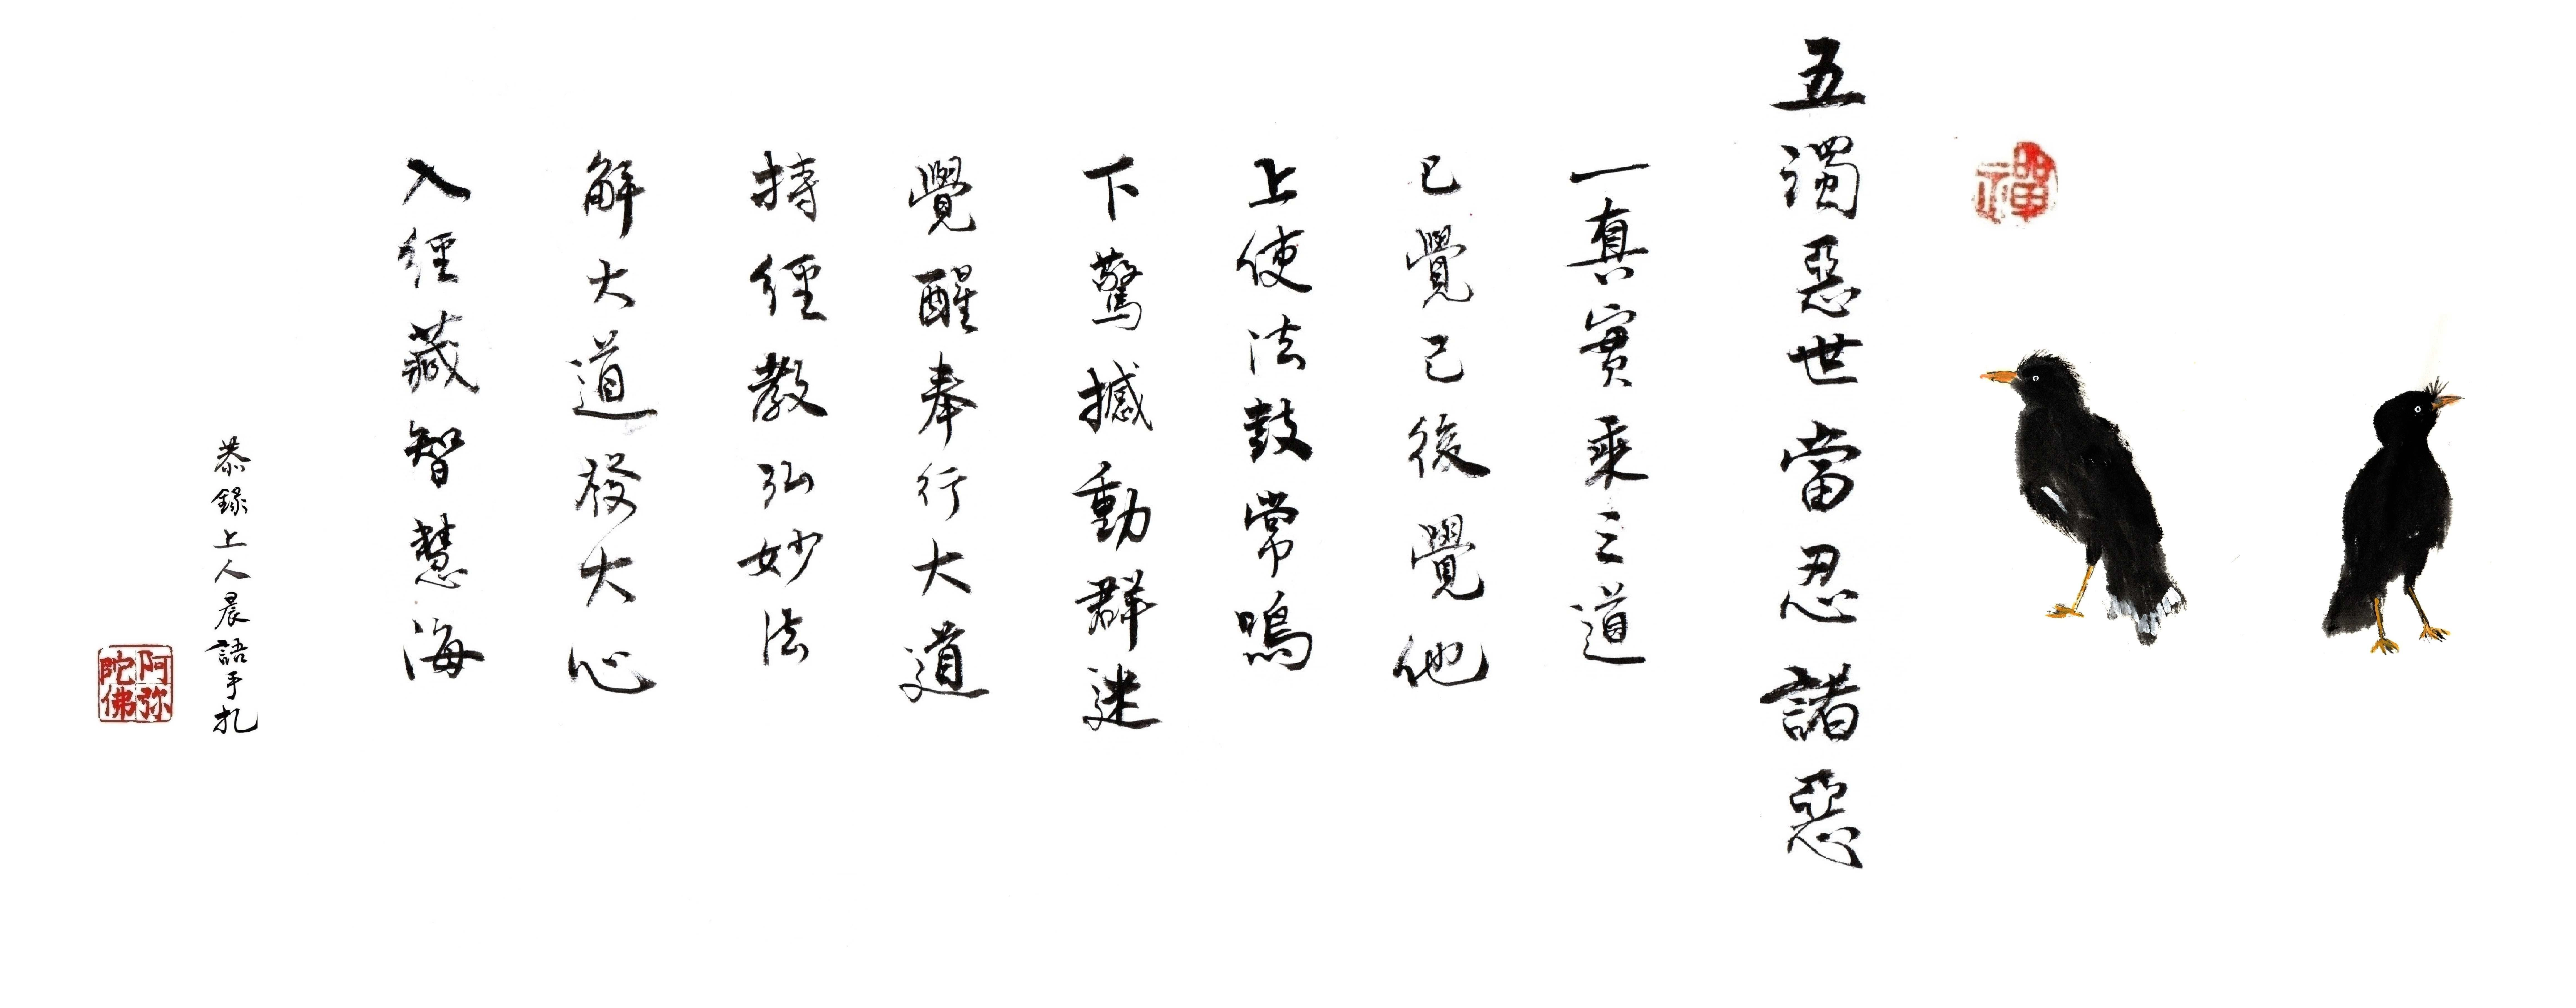 禪
五濁惡世當忍諸惡
一真實乘三道
已覺己後覺他
上使法鼓常鳴
下驚撼動群迷
覺醒奉行大道
持經教弘妙法
解大道發大心
入經藏智慧海
恭錄上人晨語手札
阿弥陀佛